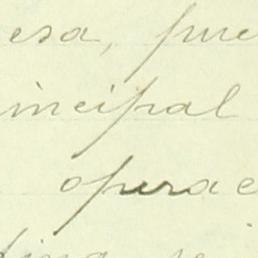 esa, pue
incipal
operac